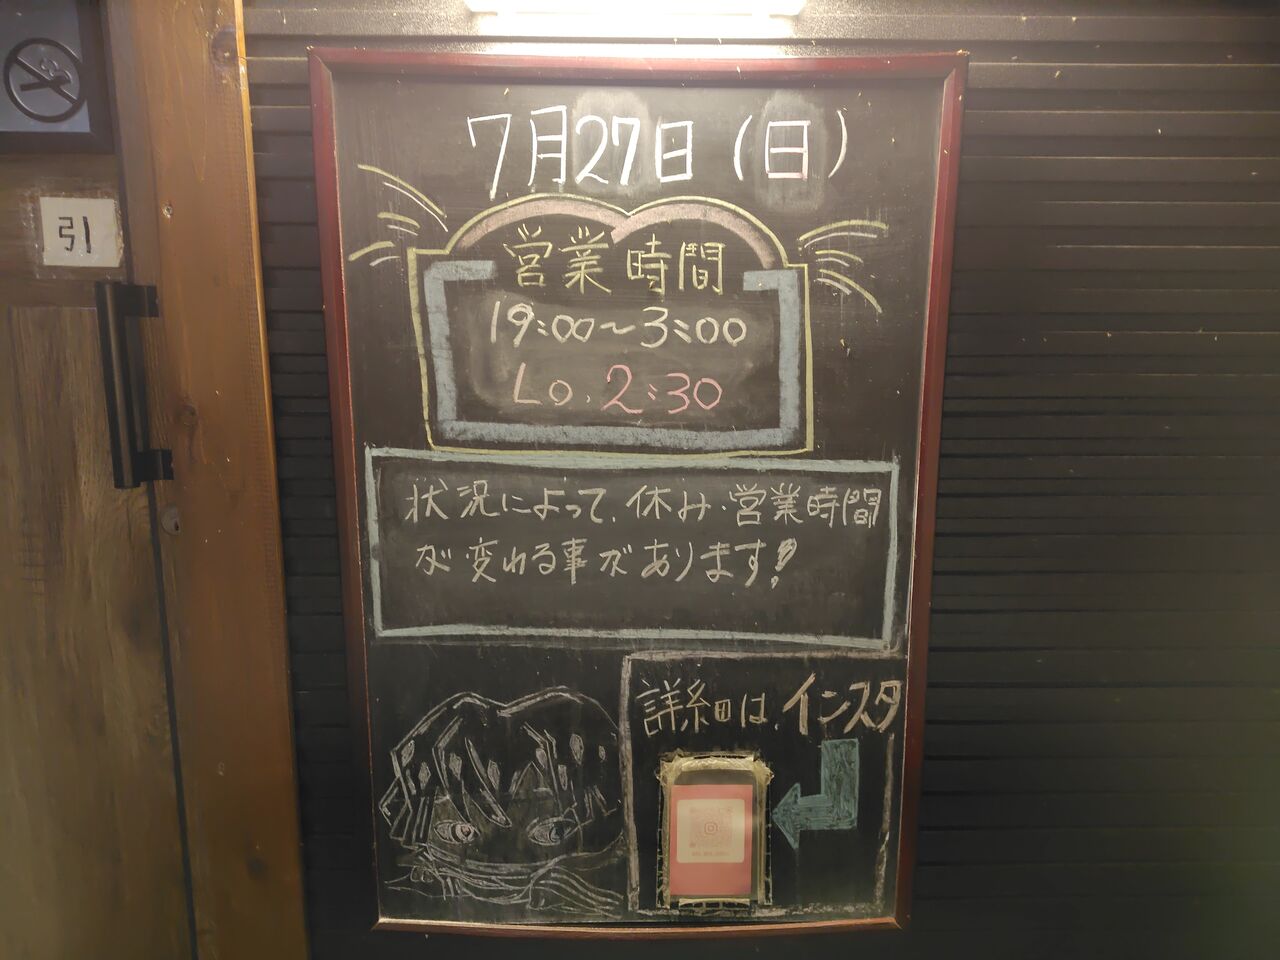 引
7月27日(日)
営業時間
19:00～3:00
Lo. 2:30
状況によって、休み・営業時間
が変わる事があります!
詳細は、インスタ